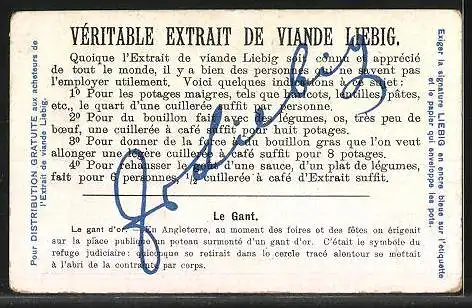 VÉRITABLE EXTRAIT DE VIANDE LIEBIG.
Quoique l'Extrait de viande Liebig soit connu et apprécié
de tout le monde, il y a bien des personnes qui ne savent pas
l'employer utilement. Voici quelques indications à ce sujet:
1º Pour les potages maigres, tels que haricots, lentilles, pâtes,
etc., le quart d'une cuillerée suffit par personne.
2º Pour du bouillon fait avec des légumes, os, très peu de
bœuf, une cuillerée à café suffit pour huit potages.
3º Pour donner de la force à du bouillon gras que l'on veut
allonger une entière cuillerée à café suffit pour 8 potages.
4º Pour rehausser le goût d'une sauce, d'un plat de légumes,
fait pour 6 personnes, ½ cuillerée à café d'Extrait suffit.
Le Gant.
Le gant d'or. — En Angleterre, au moment des foires et des fêtes on érigeait
sur la place publique un poteau surmonté d'un gant d'or. C'était le symbole du
refuge judiciaire: quiconque se retirait dans le cercle tracé alentour se mettait
à l'abri de la contrainte par corps.
Pour DISTRIBUTION GRATUITE aux acheteurs de
l'Extrait de viande Liebig.
Exiger la signature LIEBIG en encre bleue sur l'étiquette
et le papier qui enveloppe les pots.
J. v. Liebig